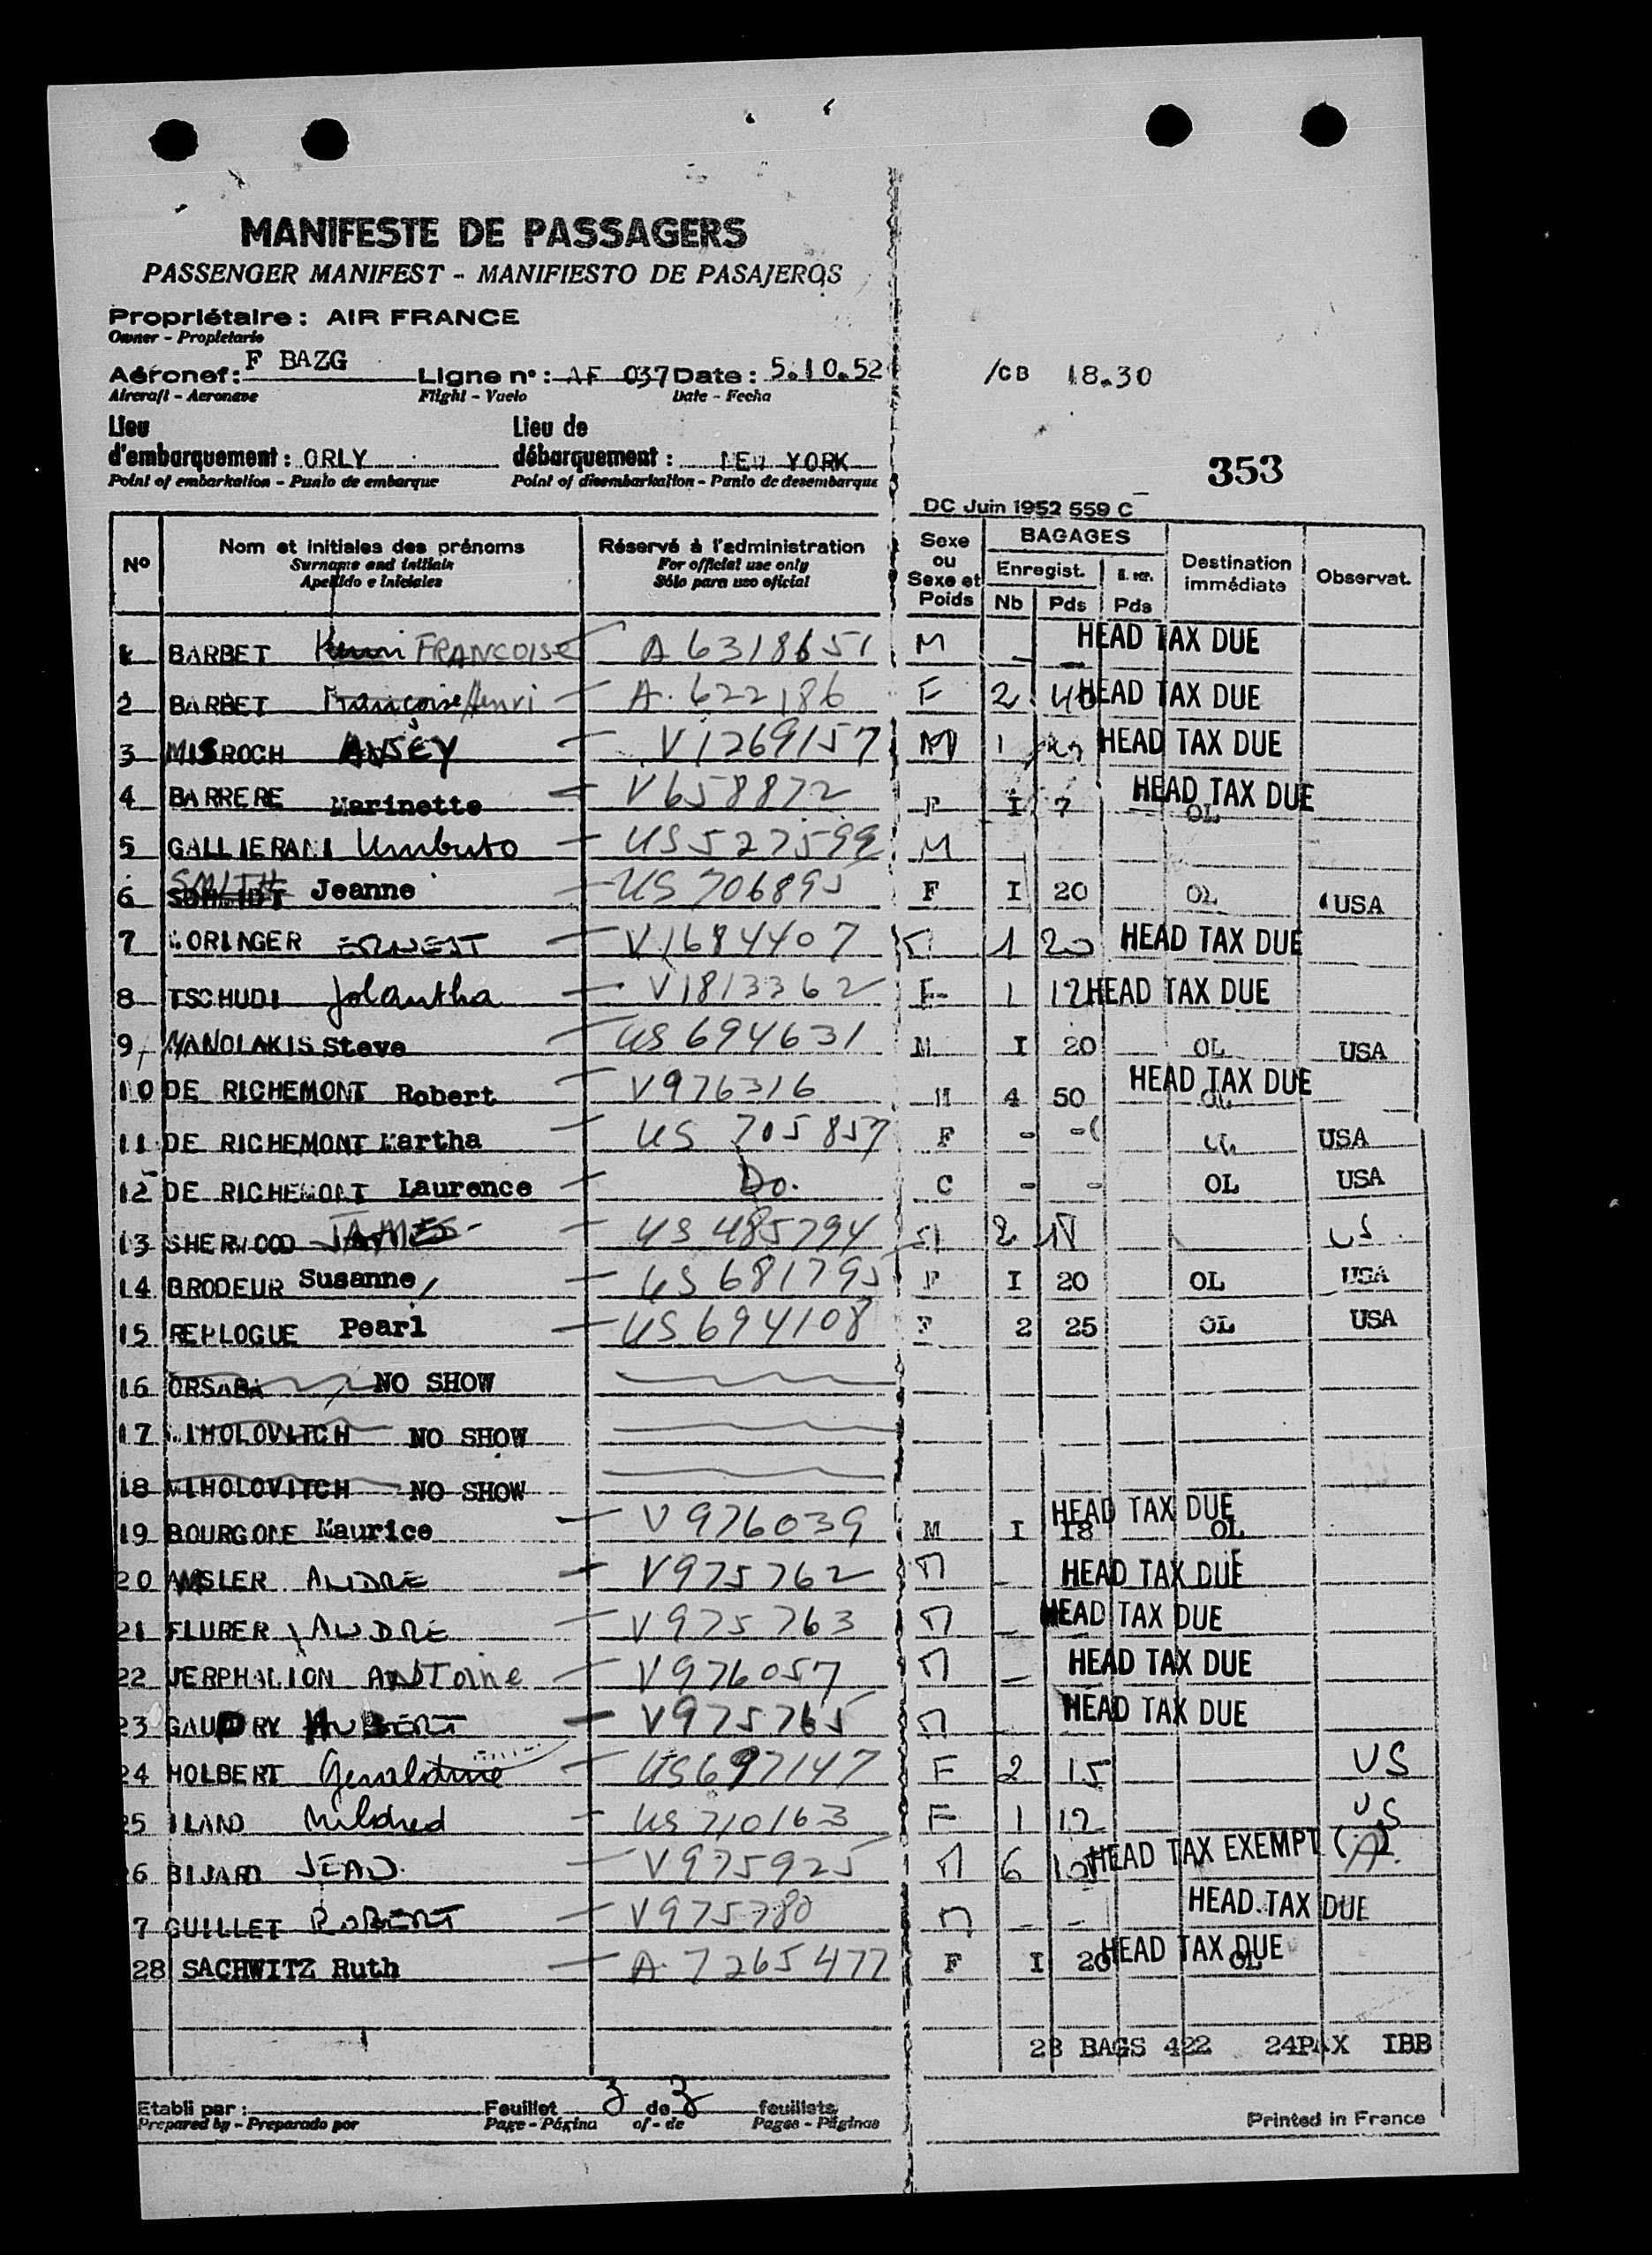 MANIFESTE DE PASSAGERS
PASSENGER MANIFEST - MANIFIESTO DE PASAJEROS
Propriétaire : AIR FRANCE
Owner - Propietario
Aéronef : F BAZG Ligne n° : AF 037 Date : 5.10.52 /CB 18.30
Aircraft - Aeronave Flight - Vuelo Date - Fecha
Lieu d'embarquement : ORLY Lieu de débarquement : NEW YORK
Point of embarkation - Punto de embarque Point of disembarkation - Punto de desembarque
353
DC Juin 1952 559 C
N° Nom et initiales des prénoms Réservé à l'administration Sexe ou Sexe et Poids BAGAGES Destination immédiate Observat.
Surname and initials For official use only Enregist.
Apellido e Iniciales Sólo para uso oficial Nb Pds Pds
1 BARBET Henri FRANCOISE A 6318651 M - - HEAD TAX DUE
2 BARBET Françoise Henri A. 622186 F 2 40 HEAD TAX DUE
3 MISROCH V1269157 M 1 HEAD TAX DUE
4 BARRERE Marinette V658872 F I 7 HEAD TAX DUE OL
5 GALLIERANI Umberto US 527599 M
6 SCHMIDT SMITH Jeanne US 706895 F I 20 OL USA
7 ERNEST V1684407 M 1 20 HEAD TAX DUE
8 TSCHUDI Jolantha V1813362 F 1 12 HEAD TAX DUE
9 MANOLAKIS Steve US 694631 M I 20 OL USA
10 DE RICHEMONT Robert V976316 M 4 50 HEAD TAX DUE OL
11 DE RICHEMONT Martha US 705857 F - - OL USA
12 DE RICHEMONT Laurence Do. C - - OL USA
13 SHERWOOD JAMES US 485794 M 2 US
14 BRODEUR Susanne US 681795 F I 20 OL USA
15 REPLOGUE Pearl US 694108 F 2 25 OL USA
16 ORSABA NO SHOW
17 NO SHOW
18 NO SHOW
19 BOURGONE Maurice V976039 M I 18 HEAD TAX DUE OL
20 AMSLER ANDRE V975762 M - HEAD TAX DUE
21 FLURER ANDRE V975763 M - HEAD TAX DUE
22 JERPHALION ANTOINE V976057 M - HEAD TAX DUE
23 GAUDRY HUBERT V975765 M - HEAD TAX DUE
24 HOLBERT Geraldine US697147 F 2 15 US
25 ILAND Mildred US 710163 F 1 12 US
26 BIJARD JEAN V975925 M 6 HEAD TAX EXEMPT (A)
7 GUILLET ROBERT V975780 M - - HEAD TAX DUE
28 SACHWITZ Ruth A-7265477 F I 20 HEAD TAX DUE OL
28 BAGS 422 24PAX IBB
Etabli par : Feuillet 3 de 3 feuillets
Prepared by - Preparado por Page - Página of - de Pages - Páginas
Printed in France